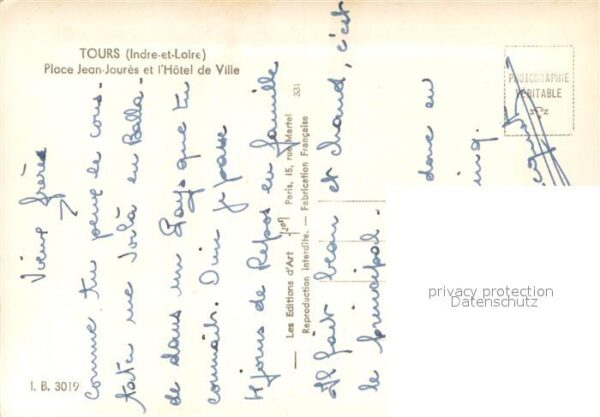 TOURS (Indre-et-Loire)
Place Jean-Jaurès et l'Hôtel de Ville
PHOTOGRAPHIE
VÉRITABLE
Vieux frère
comme tu peux le cons-
tater me voilà en Balla-
de dans un Pays que tu
connais. Oui je passe
4 jours de Repos en famille
Il fait beau et chaud, c'est
le principal.
donc en
Les Editions d'Art
Paris, 15, rue Martel
331
Reproduction interdite. — Fabrication Française
I. B. 3019
privacy protection
Datenschutz